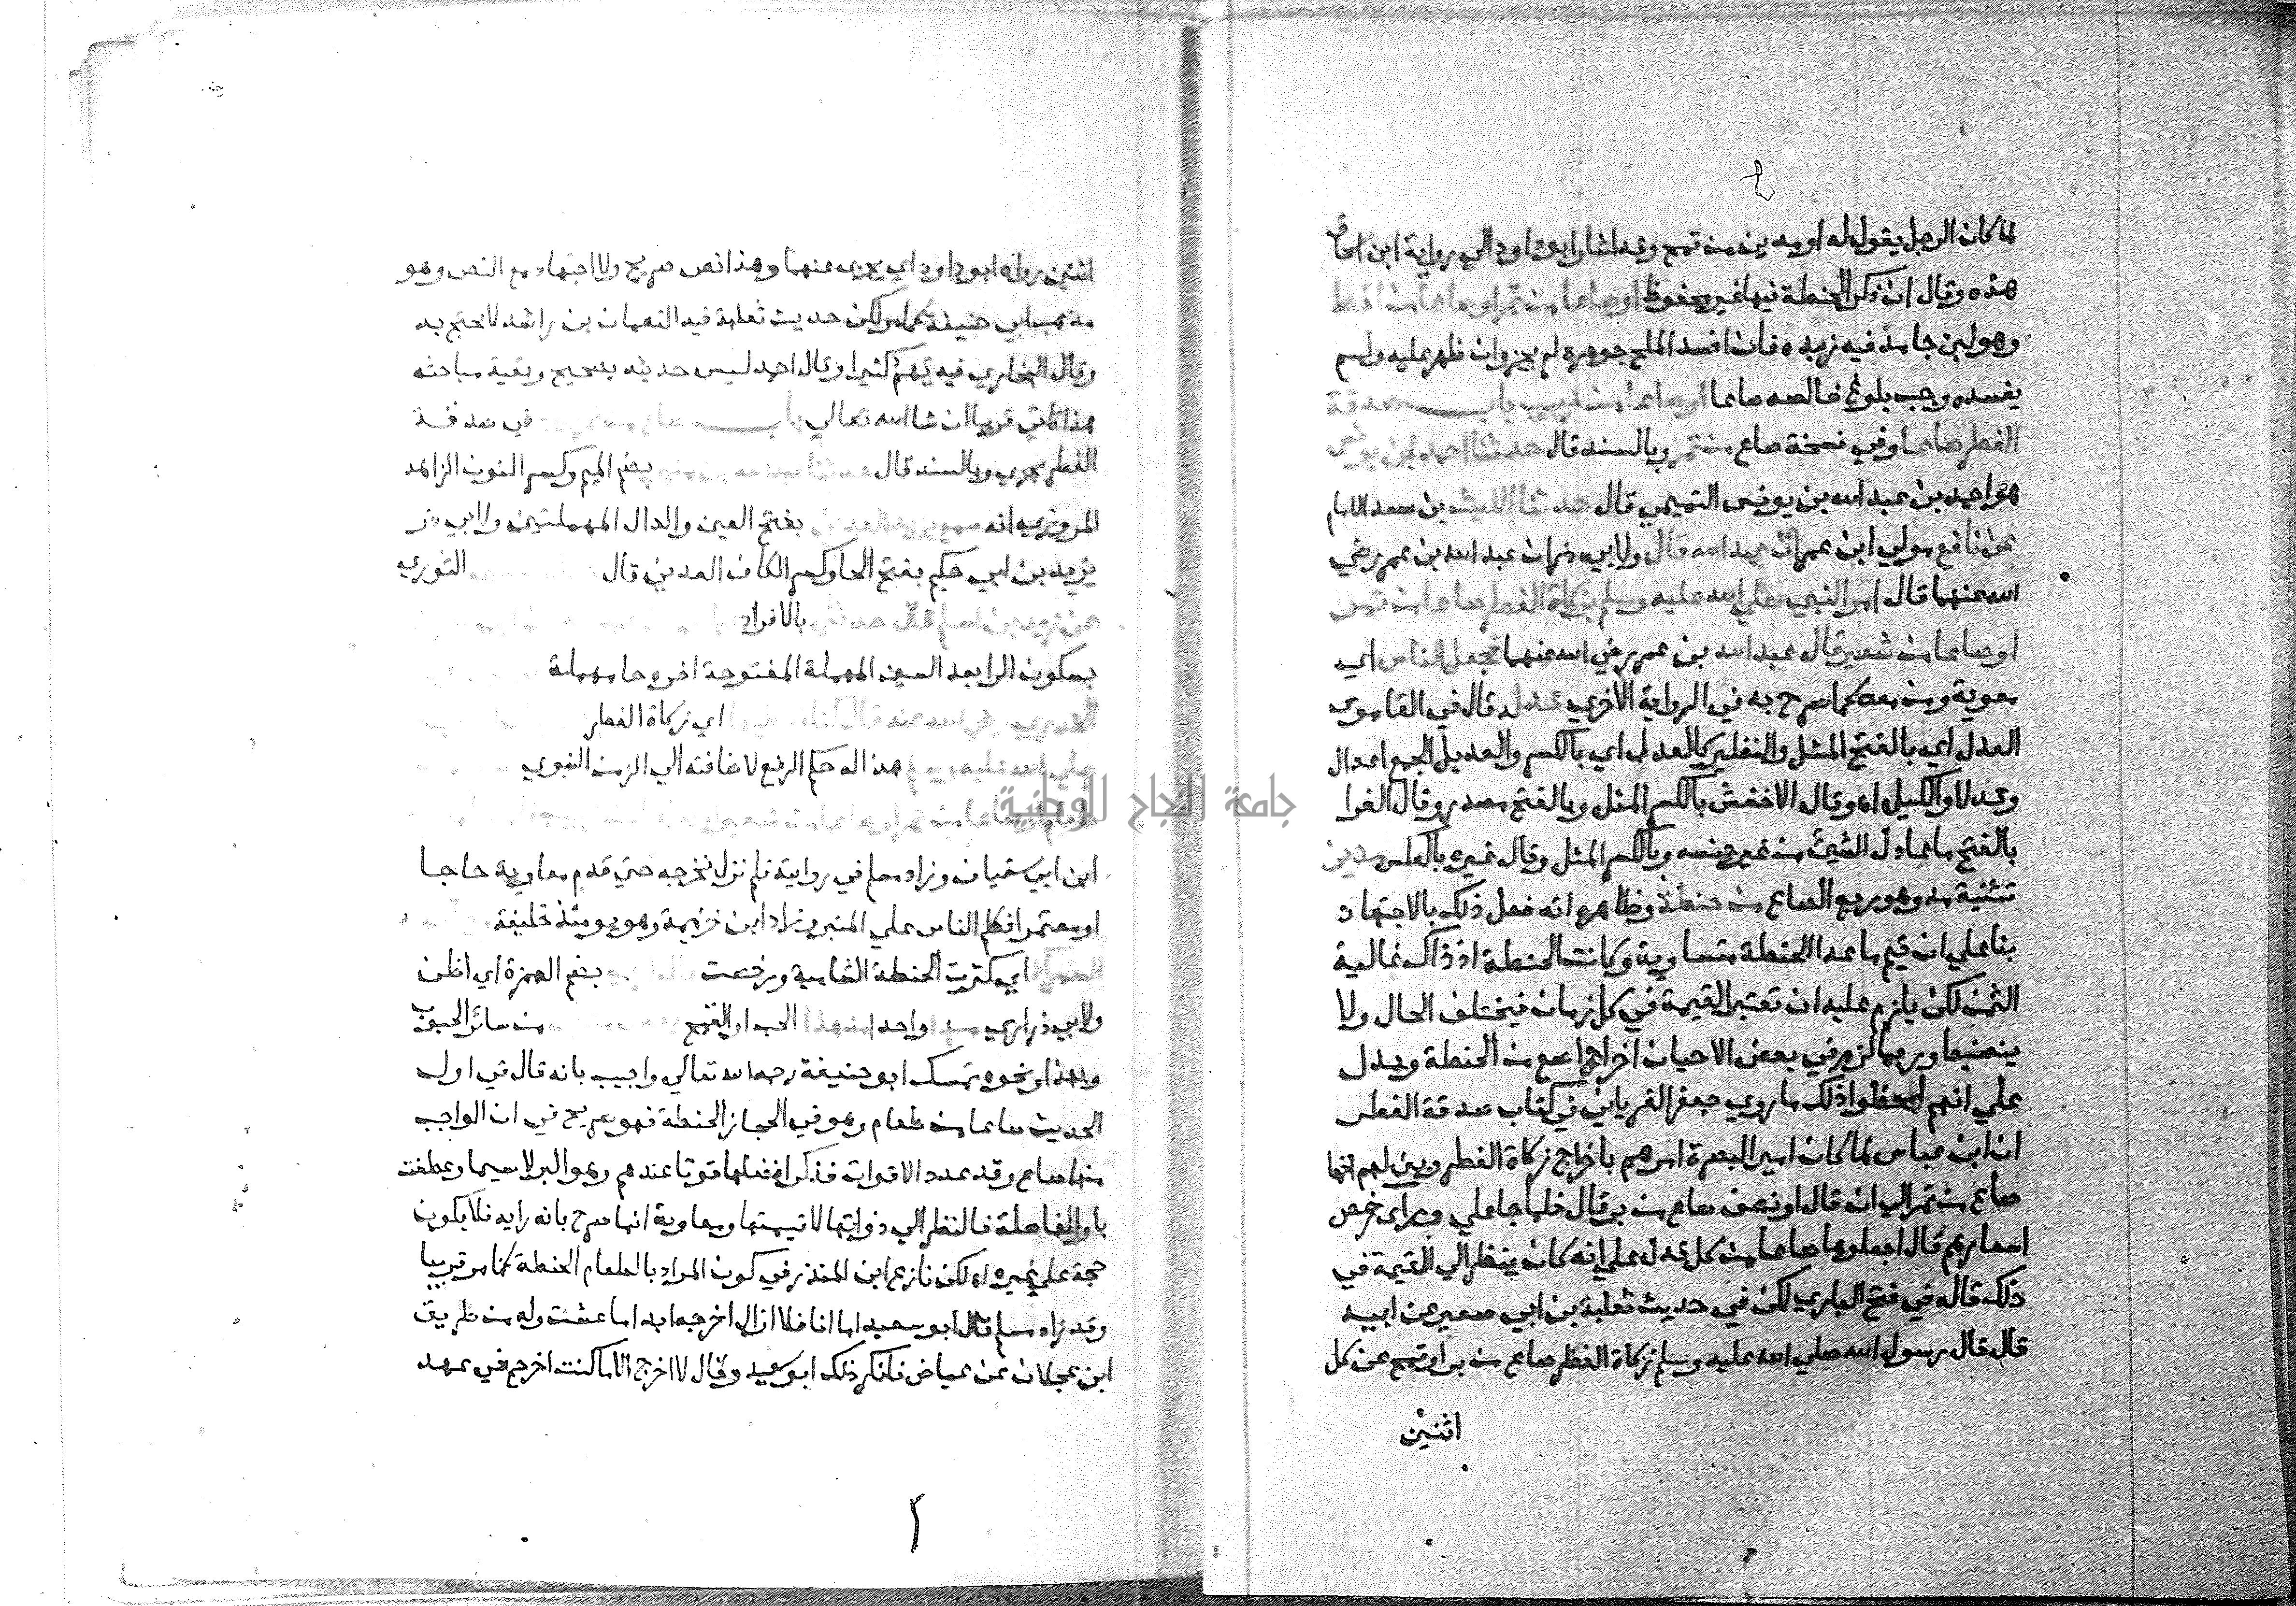 لما كان الرجل يقول له او مدين من قمح وقد اشار ابو داود الي رواية ابن اسحاق
هذه وقال ان ذكر الحنطة فيها غير محفوظ او صاعا من تمر او صاعا من اقط
وهو لبن جامد فيه زبده فان افسد الملح جوهره لم يجز وان ظهر عليه ولم
يفسده وجب بلوغ خالصه صاعا او صاعا من زبيب باب صدقة
الفطر صاعا وفي نسخة صاع من تمر وبالسند قال حدثنا احمد ابن يونس
هو احمد بن عبد الله بن يونس التميمي قال حدثنا الليث بن سعد الامام
عن نافع مولي ابن عمر ان عبد الله قال ولابي ذر ان عبد الله بن عمر رضي
الله عنهما قال امر النبي صلي الله عليه وسلم بزكاة الفطر صاعا من تمر
او صاعا من شعير قال عبد الله بن عمر رضي الله عنهما فجعل الناس اي
معوية ومن معه كما صرح به في الرواية الاخري عدله قال في القاموس
العدل اي بالفتح المثل والنظير كالعدل اي بالكسر والعديل الجمع اعدال
وعدلا والكيل اه وقال الاخفش بالكسر المثل وبالفتح مصدر وقال الفرا
بالفتح ما عادل الشيئ من غير جنسه وبالكسر المثل وقال غيره بالعكس مدين
تثنية مد وهو ربع الصاع من حنطة وظاهره انه فعل ذلك بالاجتهاد
بنا علي ان قيم ما عدا الحنطة متساوية وكانت الحنطة اذ ذاك غالية
الثمن لكن يلزم عليه ان تعتبر القيمة في كل زمان فيختلف الحال ولا
ينضبط وربما لزم في بعض الاحيان اخراج اصع من الحنطة ويدل
علي انهم لحظوا ذلك ما روي جعفر الفريابي في كتاب صدقة الفطر
ان ابن عباس لما كان امير البصرة امرهم باخراج زكاة الفطر وبين لهم انها
صاع من تمر الي ان قال او نصف صاع من بر قال فلما جا علي وراي رخص
اسعارهم قال اجعلوها صاعا من كل فدل علي انه كان ينظر الي القيمة في
ذلك قاله في فتح الباري لكن في حديث ثعلبة بن ابي صعير عن ابيه
قال قال رسول الله صلي الله عليه وسلم زكاة الفطر صاع من بر او قمح عن كل
اثنين
اثنين رواه ابو داود اي يجزي عنهما وهذا نص صريح ولا اجتهاد مع النص وهو
مذهب ابي حنيفة كما مر لكن حديث ثعلبة فيه النعمان بن راشد لا يحتج به
وقال البخاري فيه يهم كثيرا وقال احمد ليس حديثه بصحيح وبقية مباحثه
هذا تاتي قريبا ان شا الله تعالي باب في صدقة
الفطر يجزي وبالسند قال بضم الميم وكسر النون الزاهد
المروزي انه سمع بفتح العين والدال المهملتين ولابي ذر
يزيد بن ابي حكيم بفتح الحا وكسر الكاف العدني قال الثوري
بالافراد
بسكون الرا بعد السين المهملة المفتوحة اخره حا مهملة
اي زكاة الفطر
هذا له حكم الرفع لاضافته الي الزمن النبوي
جامعة النجاح الوطنية
ابن ابي سفيان وزاد مسلم في روايته فلم نزل نخرجه حتي قدم معاوية حاجا
او معتمرا فكلم الناس علي المنبر وزاد ابن خزيمة وهو يومئذ خليفة
اي كثرت الحنطة الشامية ورخصت بضم الهمزة اي اظن
ولابي ذر اري مدا واحدا من هذا الحب او القمح من سائر الحبوب
وبهذا ونحوه تمسك ابو حنيفة رحمه الله تعالي واجيب بانه قال في اول
الحديث صاعا من طعام وهو في الحجاز الحنطة فهو صريح في ان الواجب
منها صاع وقد عدد الاقوات فذكر افضلها قوتا عندهم وهو البر لا سيما وعطفت
باو الفاصلة فالنظر الي ذواتها لا قيمتها ومعاوية انما صرح بانه رايه فلا يكون
حجة علي غيره اه لكن نازع ابن المنذر في كون المراد بالطعام الحنطة كما مر قريبا
وقد زاد مسلم قال ابو سعيد اما انا فلا ازال اخرجه ابدا ما عشت وله من طريق
ابن عجلان عن عياض فانكر ذلك ابو سعيد وقال لا اخرج الا ما كنت اخرج في عهد